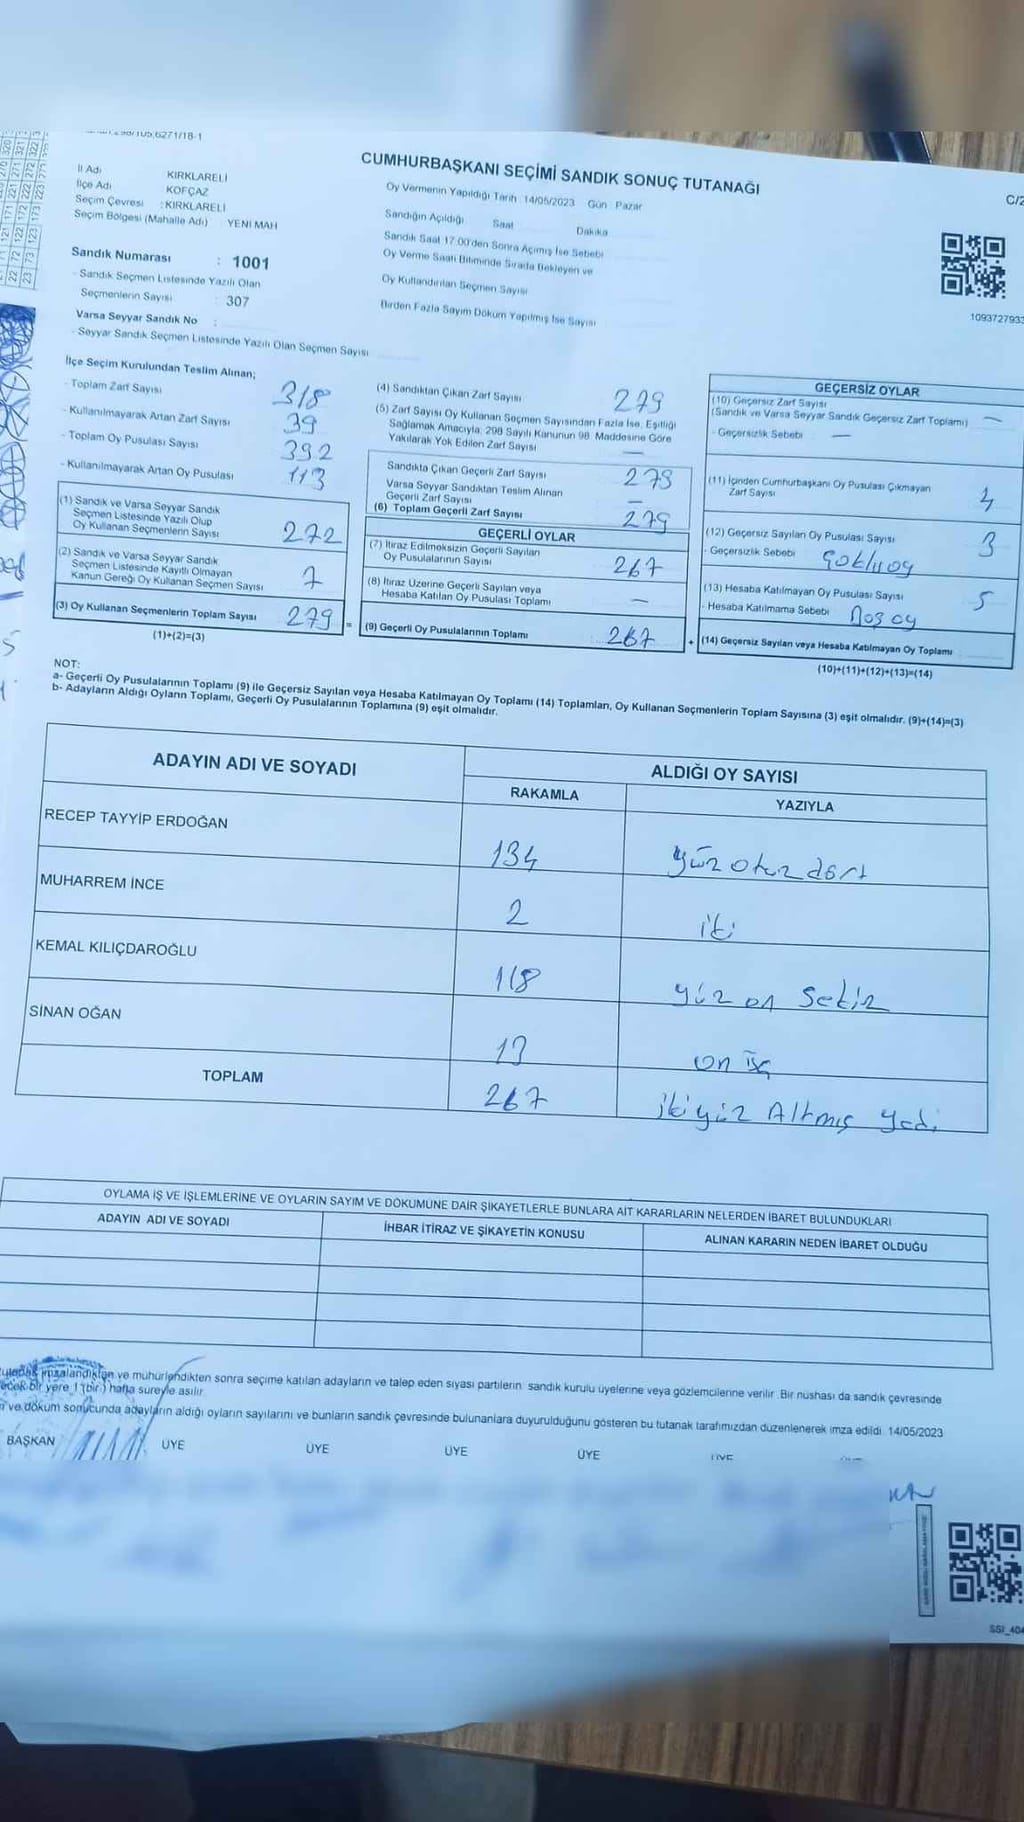 6271/18-1
CUMHURBAŞKANI SEÇİMİ SANDIK SONUÇ TUTANAĞI
C/2
İl Adı KIRKLARELİ
İlçe Adı KOFÇAZ
Seçim Çevresi : KIRKLARELİ
Seçim Bölgesi (Mahalle Adı) YENİ MAH
Oy Vermenin Yapıldığı Tarih :14/05/2023 Gün : Pazar
Sandığın Açıldığı Saat Dakika
Sandık Saat 17.00'den Sonra Açılmış İse Sebebi
Oy Verme Saati Bitiminde Sırada Bekleyen ve
Oy Kullandırılan Seçmen Sayısı
Birden Fazla Sayım Döküm Yapılmış İse Sayısı
109372793
Sandık Numarası : 1001
- Sandık Seçmen Listesinde Yazılı Olan
Seçmenlerin Sayısı : 307
Varsa Seyyar Sandık No :
- Seyyar Sandık Seçmen Listesinde Yazılı Olan Seçmen Sayısı
İlçe Seçim Kurulundan Teslim Alınan;
- Toplam Zarf Sayısı 318
- Kullanılmayarak Artan Zarf Sayısı 39
- Toplam Oy Pusulası Sayısı 392
- Kullanılmayarak Artan Oy Pusulası 113
(1) Sandık ve Varsa Seyyar Sandık
Seçmen Listesinde Yazılı Olup
Oy Kullanan Seçmenlerin Sayısı 272
(2) Sandık ve Varsa Seyyar Sandık
Seçmen Listesinde Kayıtlı Olmayan
Kanun Gereği Oy Kullanan Seçmen Sayısı 7
(3) Oy Kullanan Seçmenlerin Toplam Sayısı 279 =
(1)+(2)=(3)
(4) Sandıktan Çıkan Zarf Sayısı 279
(5) Zarf Sayısı Oy Kullanan Seçmen Sayısından Fazla İse, Eşitliği
Sağlamak Amacıyla, 298 Sayılı Kanunun 98. Maddesine Göre
Yakılarak Yok Edilen Zarf Sayısı —
Sandıkta Çıkan Geçerli Zarf Sayısı 279
Varsa Seyyar Sandıktan Teslim Alınan
Geçerli Zarf Sayısı —
(6) Toplam Geçerli Zarf Sayısı 279
GEÇERLİ OYLAR
(7) İtiraz Edilmeksizin Geçerli Sayılan
Oy Pusulalarının Sayısı 267
(8) İtiraz Üzerine Geçerli Sayılan veya
Hesaba Katılan Oy Pusulası Toplamı —
(9) Geçerli Oy Pusulalarının Toplamı 267 +
GEÇERSİZ OYLAR
(10) Geçersiz Zarf Sayısı
(Sandık ve Varsa Seyyar Sandık Geçersiz Zarf Toplamı) —
- Geçersizlik Sebebi —
(11) İçinden Cumhurbaşkanı Oy Pusulası Çıkmayan
Zarf Sayısı 4
(12) Geçersiz Sayılan Oy Pusulası Sayısı 3
- Geçersizlik Sebebi
(13) Hesaba Katılmayan Oy Pusulası Sayısı 5
- Hesaba Katılmama Sebebi Boş oy
(14) Geçersiz Sayılan veya Hesaba Katılmayan Oy Toplamı
(10)+(11)+(12)+(13)=(14)
NOT:
a- Geçerli Oy Pusulalarının Toplamı (9) ile Geçersiz Sayılan veya Hesaba Katılmayan Oy Toplamı (14) Toplamları, Oy Kullanan Seçmenlerin Toplam Sayısına (3) eşit olmalıdır. (9)+(14)=(3)
b- Adayların Aldığı Oyların Toplamı, Geçerli Oy Pusulalarının Toplamına (9) eşit olmalıdır.
ADAYIN ADI VE SOYADI ALDIĞI OY SAYISI
RAKAMLA YAZIYLA
RECEP TAYYİP ERDOĞAN 134 yüz otuz dört
MUHARREM İNCE 2 iki
KEMAL KILIÇDAROĞLU 118 yüz on sekiz
SİNAN OĞAN 13 on üç
TOPLAM 267 ikiyüz Altmış yedi
OYLAMA İŞ VE İŞLEMLERİNE VE OYLARIN SAYIM VE DÖKÜMÜNE DAİR ŞİKAYETLERLE BUNLARA AİT KARARLARIN NELERDEN İBARET BULUNDUKLARI
ADAYIN ADI VE SOYADI İHBAR İTİRAZ VE ŞİKAYETİN KONUSU ALINAN KARARIN NEDEN İBARET OLDUĞU
imzalandıktan ve mühürlendikten sonra seçime katılan adayların ve talep eden siyasi partilerin sandık kurulu üyelerine veya gözlemcilerine verilir. Bir nüshası da sandık çevresinde
bir yere 1 (bir) hafta süreyle asılır.
ve döküm sonucunda adayların aldığı oyların sayılarını ve bunların sandık çevresinde bulunanlara duyurulduğunu gösteren bu tutanak tarafımızdan düzenlenerek imza edildi. 14/05/2023
BAŞKAN ÜYE ÜYE ÜYE ÜYE ÜYE
SSI_404